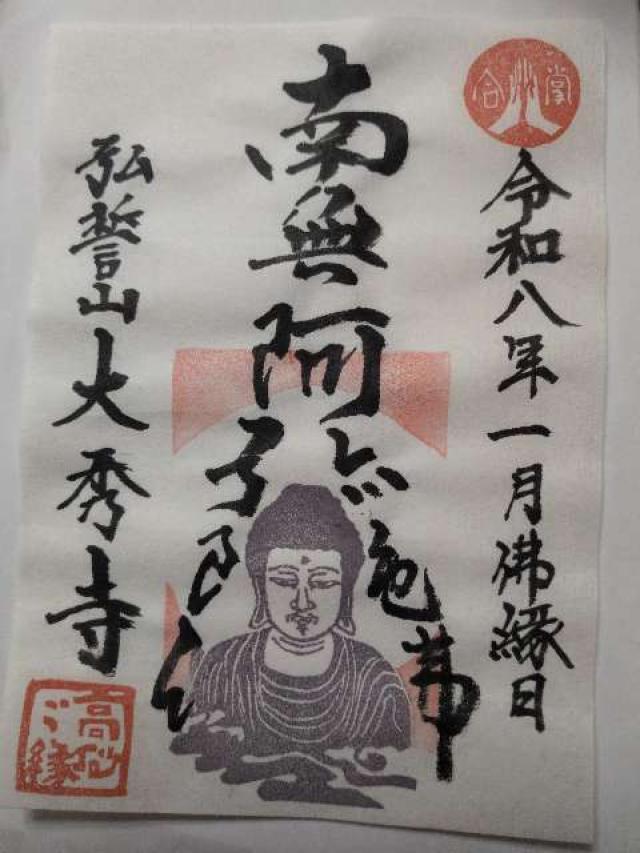 合掌
令和八年一月佛縁日
南無阿弥陀佛
弘誓山大秀寺
高砂
ご縁